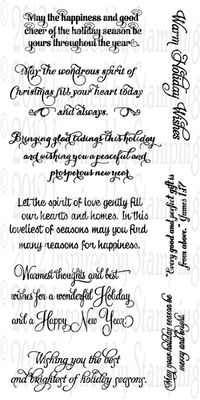 May the happiness and good
cheer of the holiday season be
yours throughout the year.
May the wondrous spirit of
Christmas fill your heart today
and always.
Bringing glad tidings this holiday
and wishing you a peaceful and
prosperous new year.
Let the spirit of love gently fill
our hearts and homes. In this
loveliest of seasons may you find
many reasons for happiness.
Warmest thoughts and best
wishes for a wonderful Holiday
and a Happy New Year.
Wishing you the best
and brightest of holiday seasons.
Warm Holiday Wishes
"Every good and perfect gift is
from above." James 1:17
May your holiday season be
merry and bright.